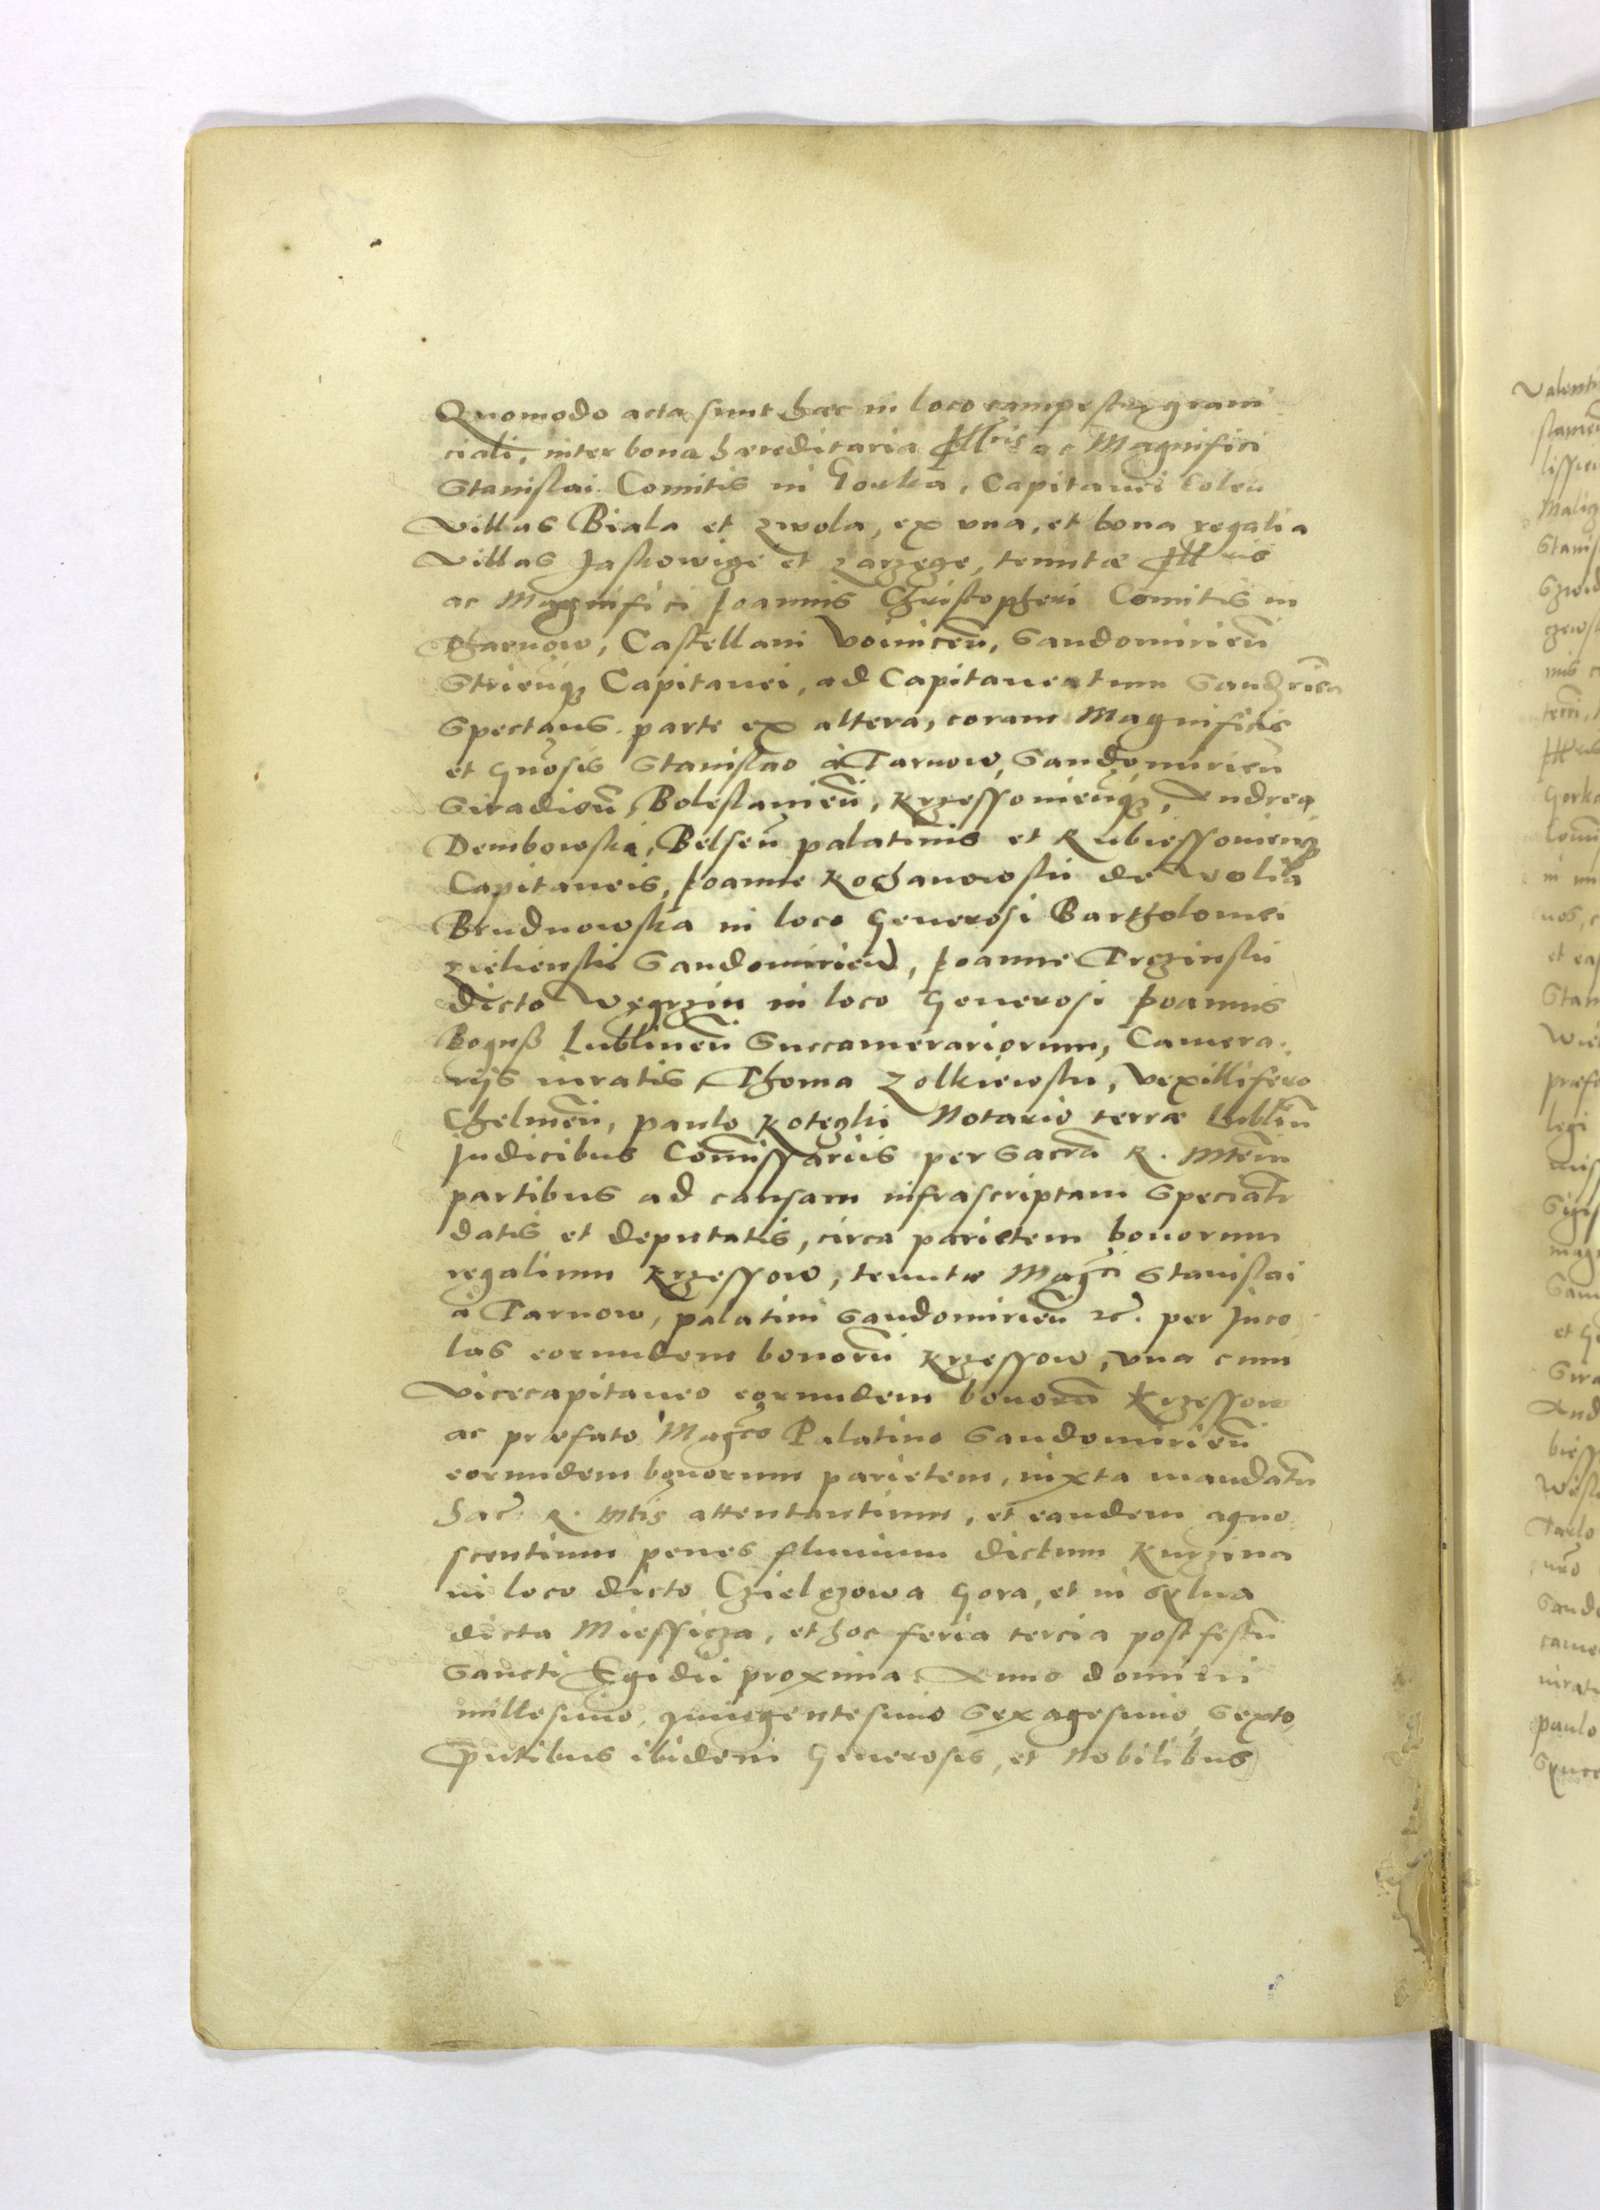 Quomodo acta sunt haec in loco campestri grani
ciali, inter bona haereditaria Illris ac Magnifici
Stanislai Comitis in Gorka, Capitanei Colen
villas Biala et Zwola, ex una, et bona regalia
villas Jaskowize et Zarzeze, tenutae Illris
ac Magnifici Joannis Christopheri Comitis in
Tharnow, Castellani Voinicen, Sandomirien
Strienq Capitanei, ad Capitaneatum Sandrien
spectans parte ex altera, coram Magnificis
et Gnosis Stanislao à Tarnow, Sandomirien
Siradien, Boleslauien, Krzessouienq, Andrea
Dembowski, Belsen palatinis et Rubiessouienq
Capitaneis, Joanne Kochanowski de Volia
Brudnowska in loco Generosi Bartholomei
Zielienski Sandomirien, Joanne Trczinski
dicto Węgrzin in loco Generosi Joannis
Boguß Lublinen Succamerariorum, Camera
rijs iuratis, Thoma Zolkiewski, vexillifero
Chelmen, paulo Koteczki Notario terrae Lublin
Judicibus Comissariis per Sacra R. Mtem
partibus ad causam infrascriptam speciatr
datis et deputatis, circa parietem bonorum
regalium Krzessow, tenutae Magci Stanislai
à Tarnow, palatini Sandomirien etc. per Inco
las eorundem bonoru Krzessow, una cum
vicecapitaneo eorundem bonoru Krzessow
ac praefato Magco Palatino Sandomirien
eorundem bonorum parietem, iuxta mandatu
Sac R. Mtis attentantium, et eandem agno
scentium penes fluuium dictum Kurzina
in loco dicto Czielczowa Gora, et in sylua
dicta Miessicza, et hoc feria tercia post festu
Sancti Egidii proxima Anno domini
millesimo, quingentesimo Sexagesimo, Sexto
pntibus ibidem Generosis, et Nobilibus